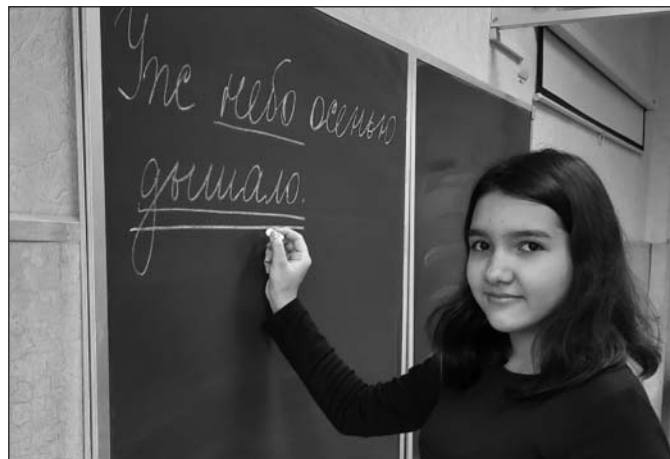 Уж небо осенью
дышало.